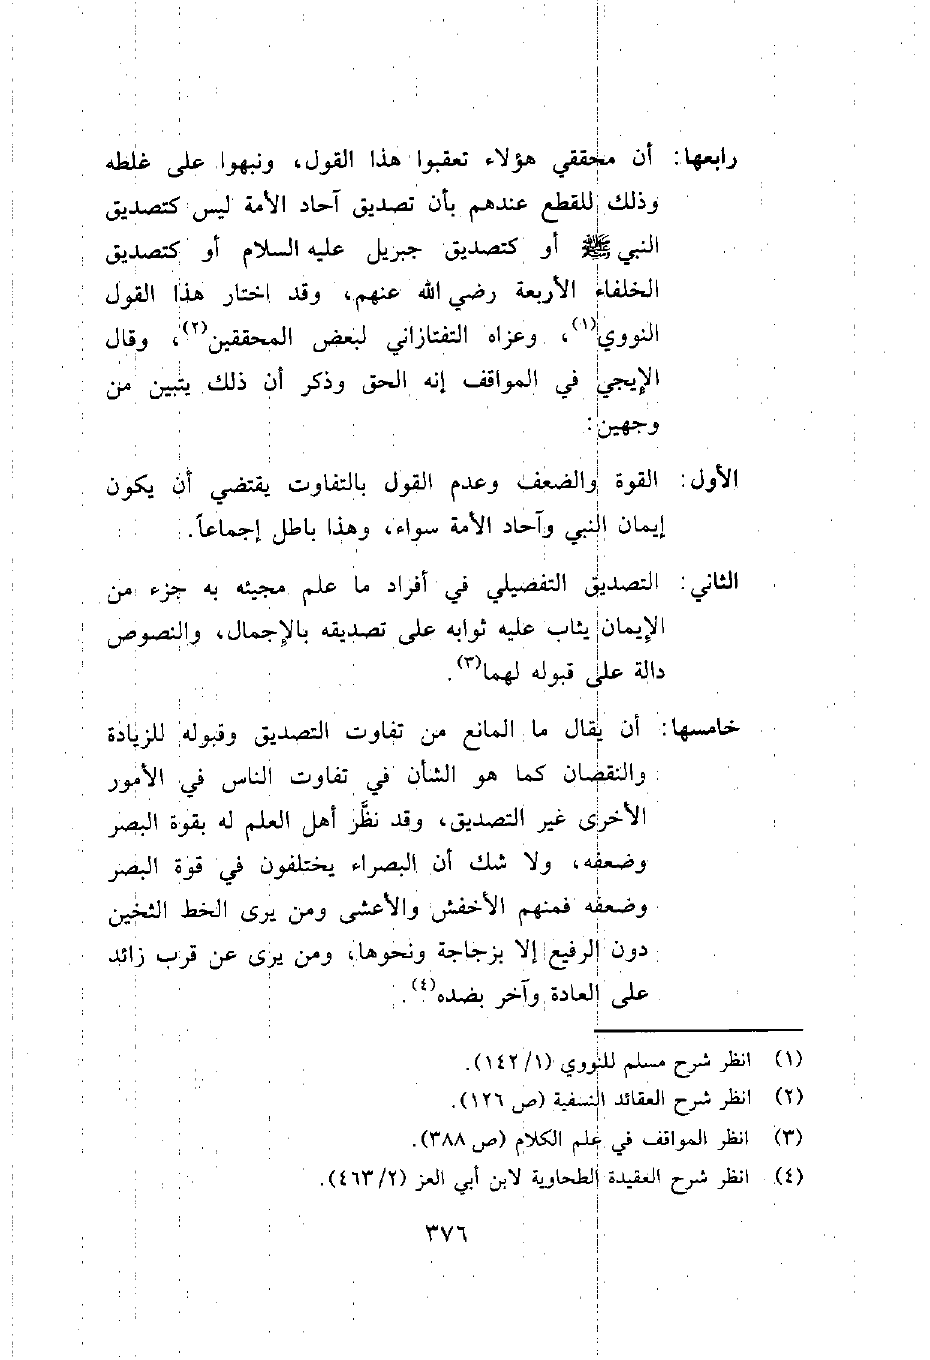 رابعها: أن محققي هؤلاء تعقبوا هذا القول، ونبهوا على غلطه
وذلك للقطع عندهم بأن تصديق آحاد الأمة ليس كتصديق
النبي ﷺ أو كتصديق جبريل عليه السلام أو كتصديق
الخلفاء الأربعة رضي الله عنهم، وقد اختار هذا القول
النووي(١)، وعزاه التفتازاني لبعض المحققين(٢)، وقال
الإيجي في المواقف إنه الحق وذكر أن ذلك يتبين من
وجهين:
الأول: القوة والضعف وعدم القول بالتفاوت يقتضي أن يكون
إيمان النبي وآحاد الأمة سواء، وهذا باطل إجماعاً.
الثاني: التصديق التفصيلي في أفراد ما علم مجيئه به جزء من
الإيمان يثاب عليه ثوابه على تصديقه بالإجمال، والنصوص
دالة على قبوله لهما(٣).
خامسها: أن يقال ما المانع من تفاوت التصديق وقبوله للزيادة
والنقصان كما هو الشأن في تفاوت الناس في الأمور
الأخرى غير التصديق، وقد نظَّر أهل العلم له بقوة البصر
وضعفه، ولا شك أن البصراء يختلفون في قوة البصر
وضعفه فمنهم الأخفش والأعشى ومن يرى الخط الثخين
دون الرفيع إلا بزجاجة ونحوها، ومن يرى عن قرب زائد
على العادة وآخر بضده(٤).
(١) انظر شرح مسلم للنووي (١٤٢/١).
(٢) انظر شرح العقائد النسفية (ص ١٢٦).
(٣) انظر المواقف في علم الكلام (ص ٣٨٨).
(٤) انظر شرح العقيدة الطحاوية لابن أبي العز (٤٦٣/٢).
٣٧٦